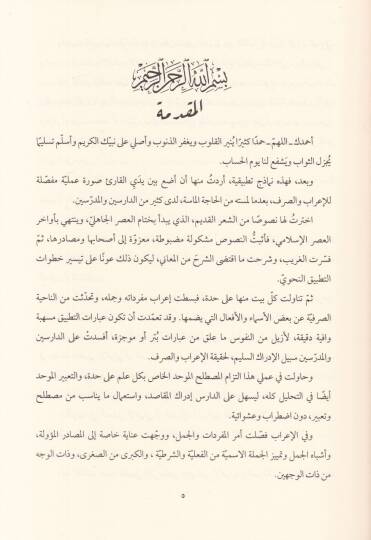 بسم الله الرحمن الرحيم
المقدمة
أحمدك ـ اللهمّ ـ حمدًا كثيرًا يُنير القلوب ويغفر الذنوب وأصلي على نبيّك الكريم وأسلّم تسليمًا
يُجزل الثواب ويَشفع لنا يوم الحساب.
وبعد، فهذه نماذج تطبيقية، أردتُ منها أن أضع بين يدَي القارئ صورة عمليّة مفصّلة
للإعراب والصرف، بعدما لمسته من الحاجة الماسة، لدى كثير من الدارسين والمدرّسين.
اخترتُ لها نصوصًا من الشعر القديم، الذي يبدأ بختام العصر الجاهليّ، وينتهي بأواخر
العصر الإسلامي، فأثبتُّ النصوص مشكولة مضبوطة، معزوّة إلى أصحابها ومصادرها، ثمّ
فسّرت الغريب، وشرحت ما اقتضى الشرحَ من المعاني، ليكون ذلك عونًا على تيسير خطوات
التطبيق النحويّ.
ثمّ تناولت كلّ بيت منها على حدة، فبسطت إعراب مفرداته وجمله، وتحدّثت من الناحية
الصرفيّة عن بعض الأسماء والأفعال التي يضمها. وقد تعمّدت أن تكون عبارات التطبيق مسهبة
وافية دقيقة، لأزيل من النفوس ما علق من عبارات بُتْر أو موجزة، أفسدتْ على الدارسين
والمدرّسين سبيل الإدراك السليم، لحقيقة الإعراب والصرف.
وحاولت في عملي هذا التزام المصطلح الموحد الخاص بكل علم على حدة، والتعبير الموحد
أيضًا في التحليل كله، ليسهل على الدارس إدراك المقاصد، واستعمال ما يناسب من مصطلح
وتعبير، دون اضطراب وعشوائية.
وفي الإعراب فصّلت أمر المفردات والجمل، ووجّهت عناية خاصة إلى المصادر المؤولة،
وأشباه الجمل وتمييز الجملة الاسميّة من الفعليّة والشرطيّة، والكبرى من الصغرى، وذات الوجه
من ذات الوجهين.
٥